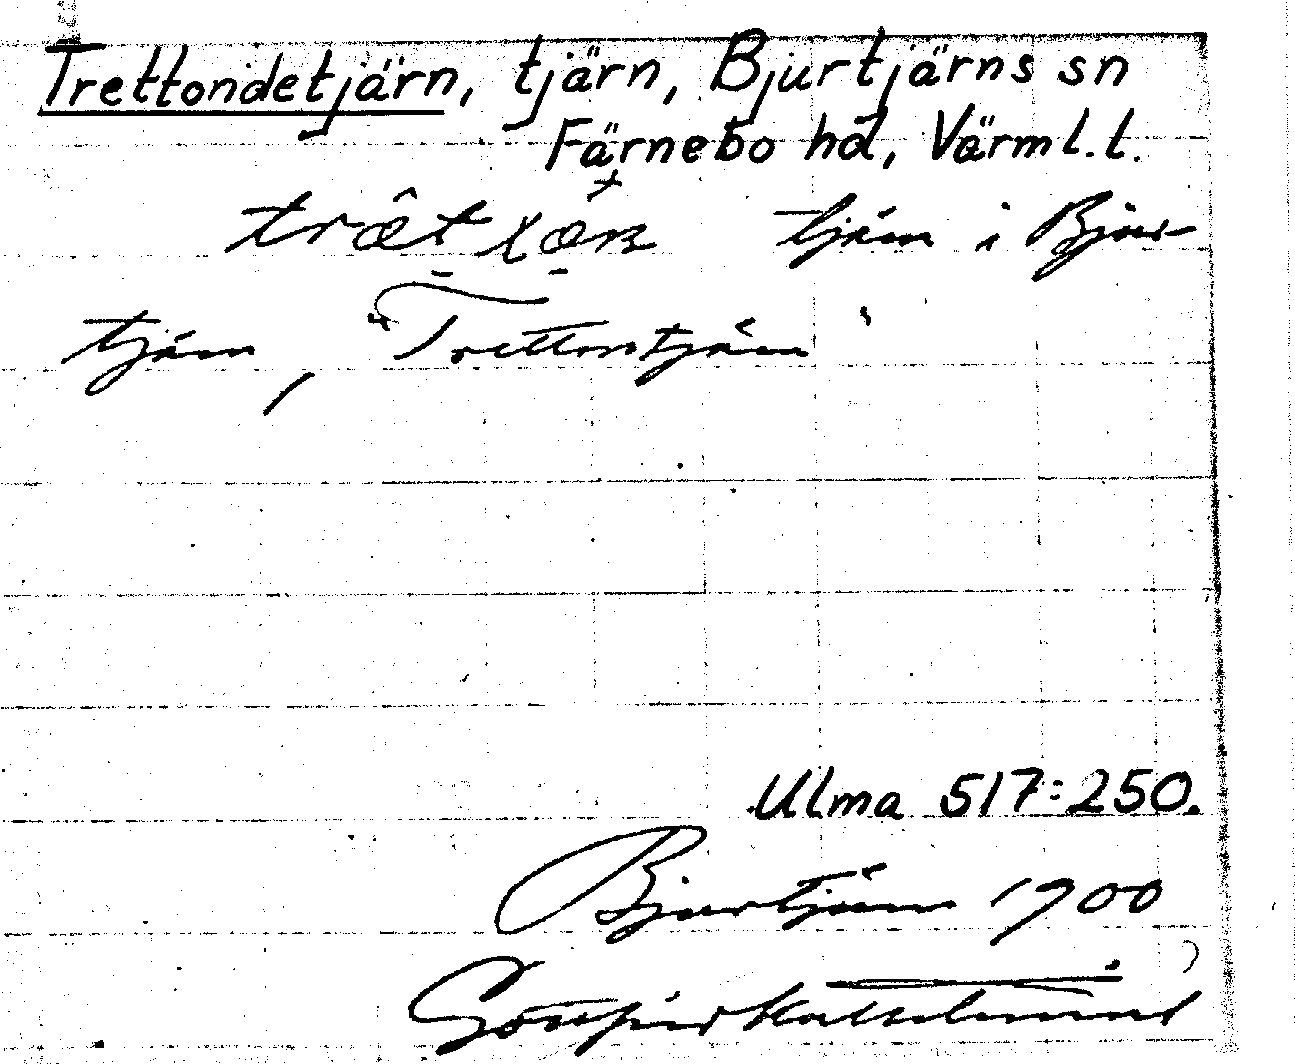 Trettondetjärn, tjärn, Bjurtjärns sn
Färnebo hd, Värml.l.
tjärn i Bjur-
tjärn, "Trettontjärn"
Ulma 517:250.
Bjurtjärn 1900